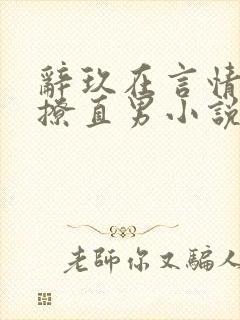 辭玖在言情
撩直男小說
老師你又騙人